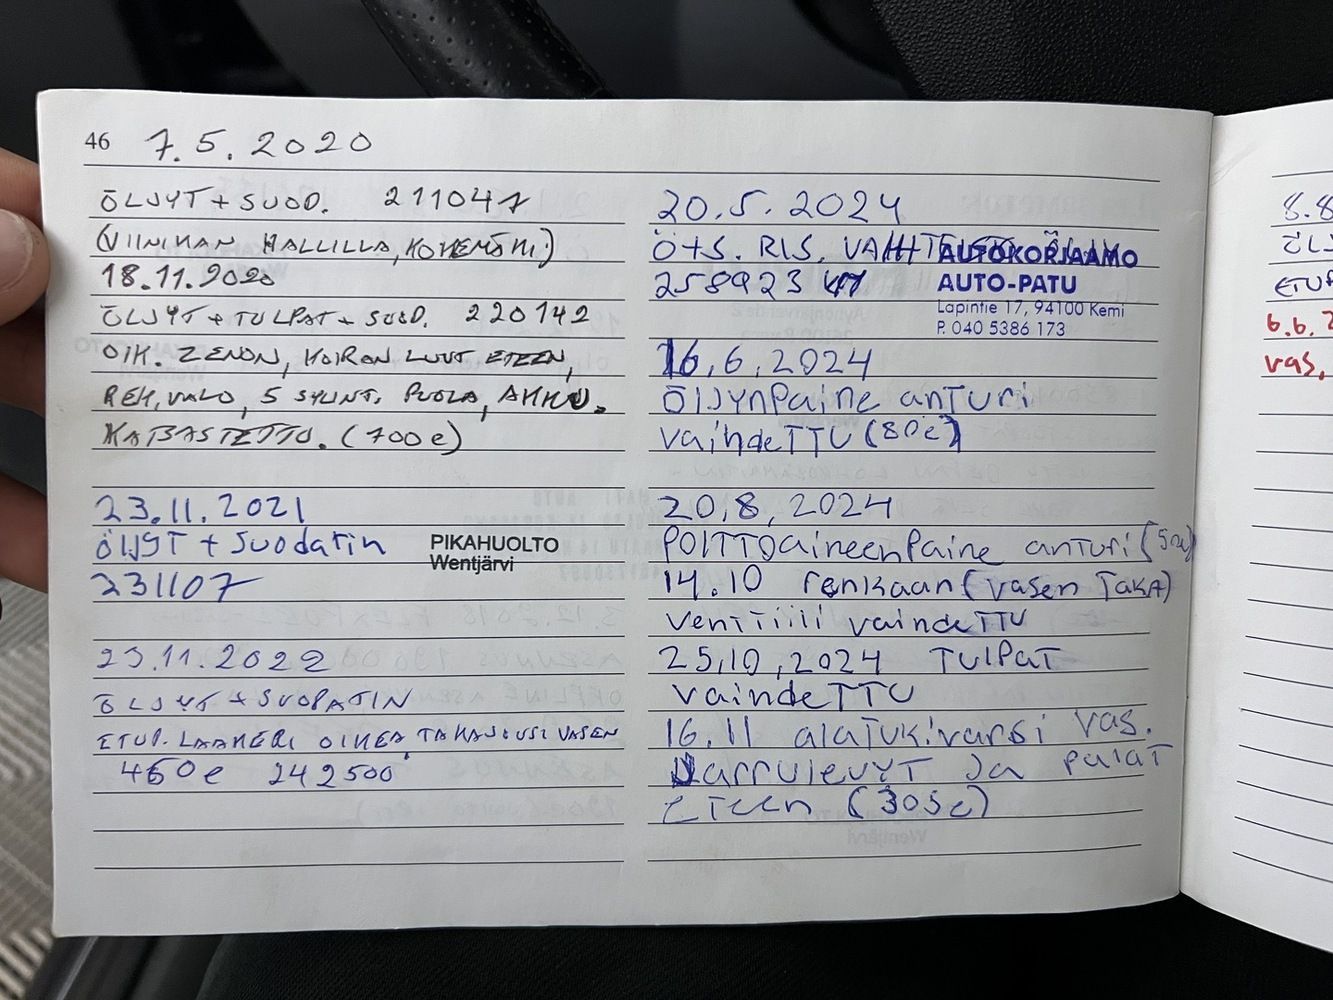 46 7.5.2020
ÖLJYT + SUOD. 211047
(VIINIKAN HALLILLA, KOKEMÄKI)
18.11.2020
ÖLJYT + TULPAT + SUOD. 220142
OIK. ZENON, KOIRAN LUUT ETEEN,
REK, VALO, 5 SYLINT. PUOLA, AKKU.
KATSASTETTU. (700e)
23.11.2021
ÖljyT + Suodatin
PIKAHUOLTO
Wentjärvi
231107
23.11.2022
ÖLJYT + SUODATIN
ETUP. LAAKERI OIKEA, TAKAJOUSI VASEN
460e 242500
20.5.2024
Ö+S. RIS. VAIHT
258923
AUTOKORJAAMO
AUTO-PATU
Lapintie 17, 94100 Kemi
P. 040 5386 173
16.6.2024
ÖljynPaine anTuri
vaihdeTTU (80e)
20,8,2024
POlTTOaineenPaine anTuri
14.10 renkaan (vasen TaKA)
venTTiili vaihdeTTU
25,10,2024 TULPaT
vaihdeTTU
16.11 alaTukivarsi vas.
Jarrulevyt Ja PalaT
eTeen (305e)
8.8
ÖLJ
ETUP
6.6.2
vas,